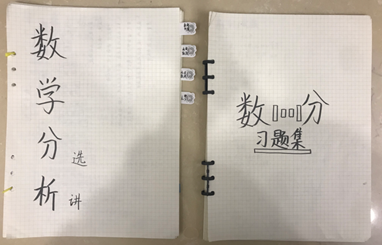 数学分析
选讲
数分
习题集